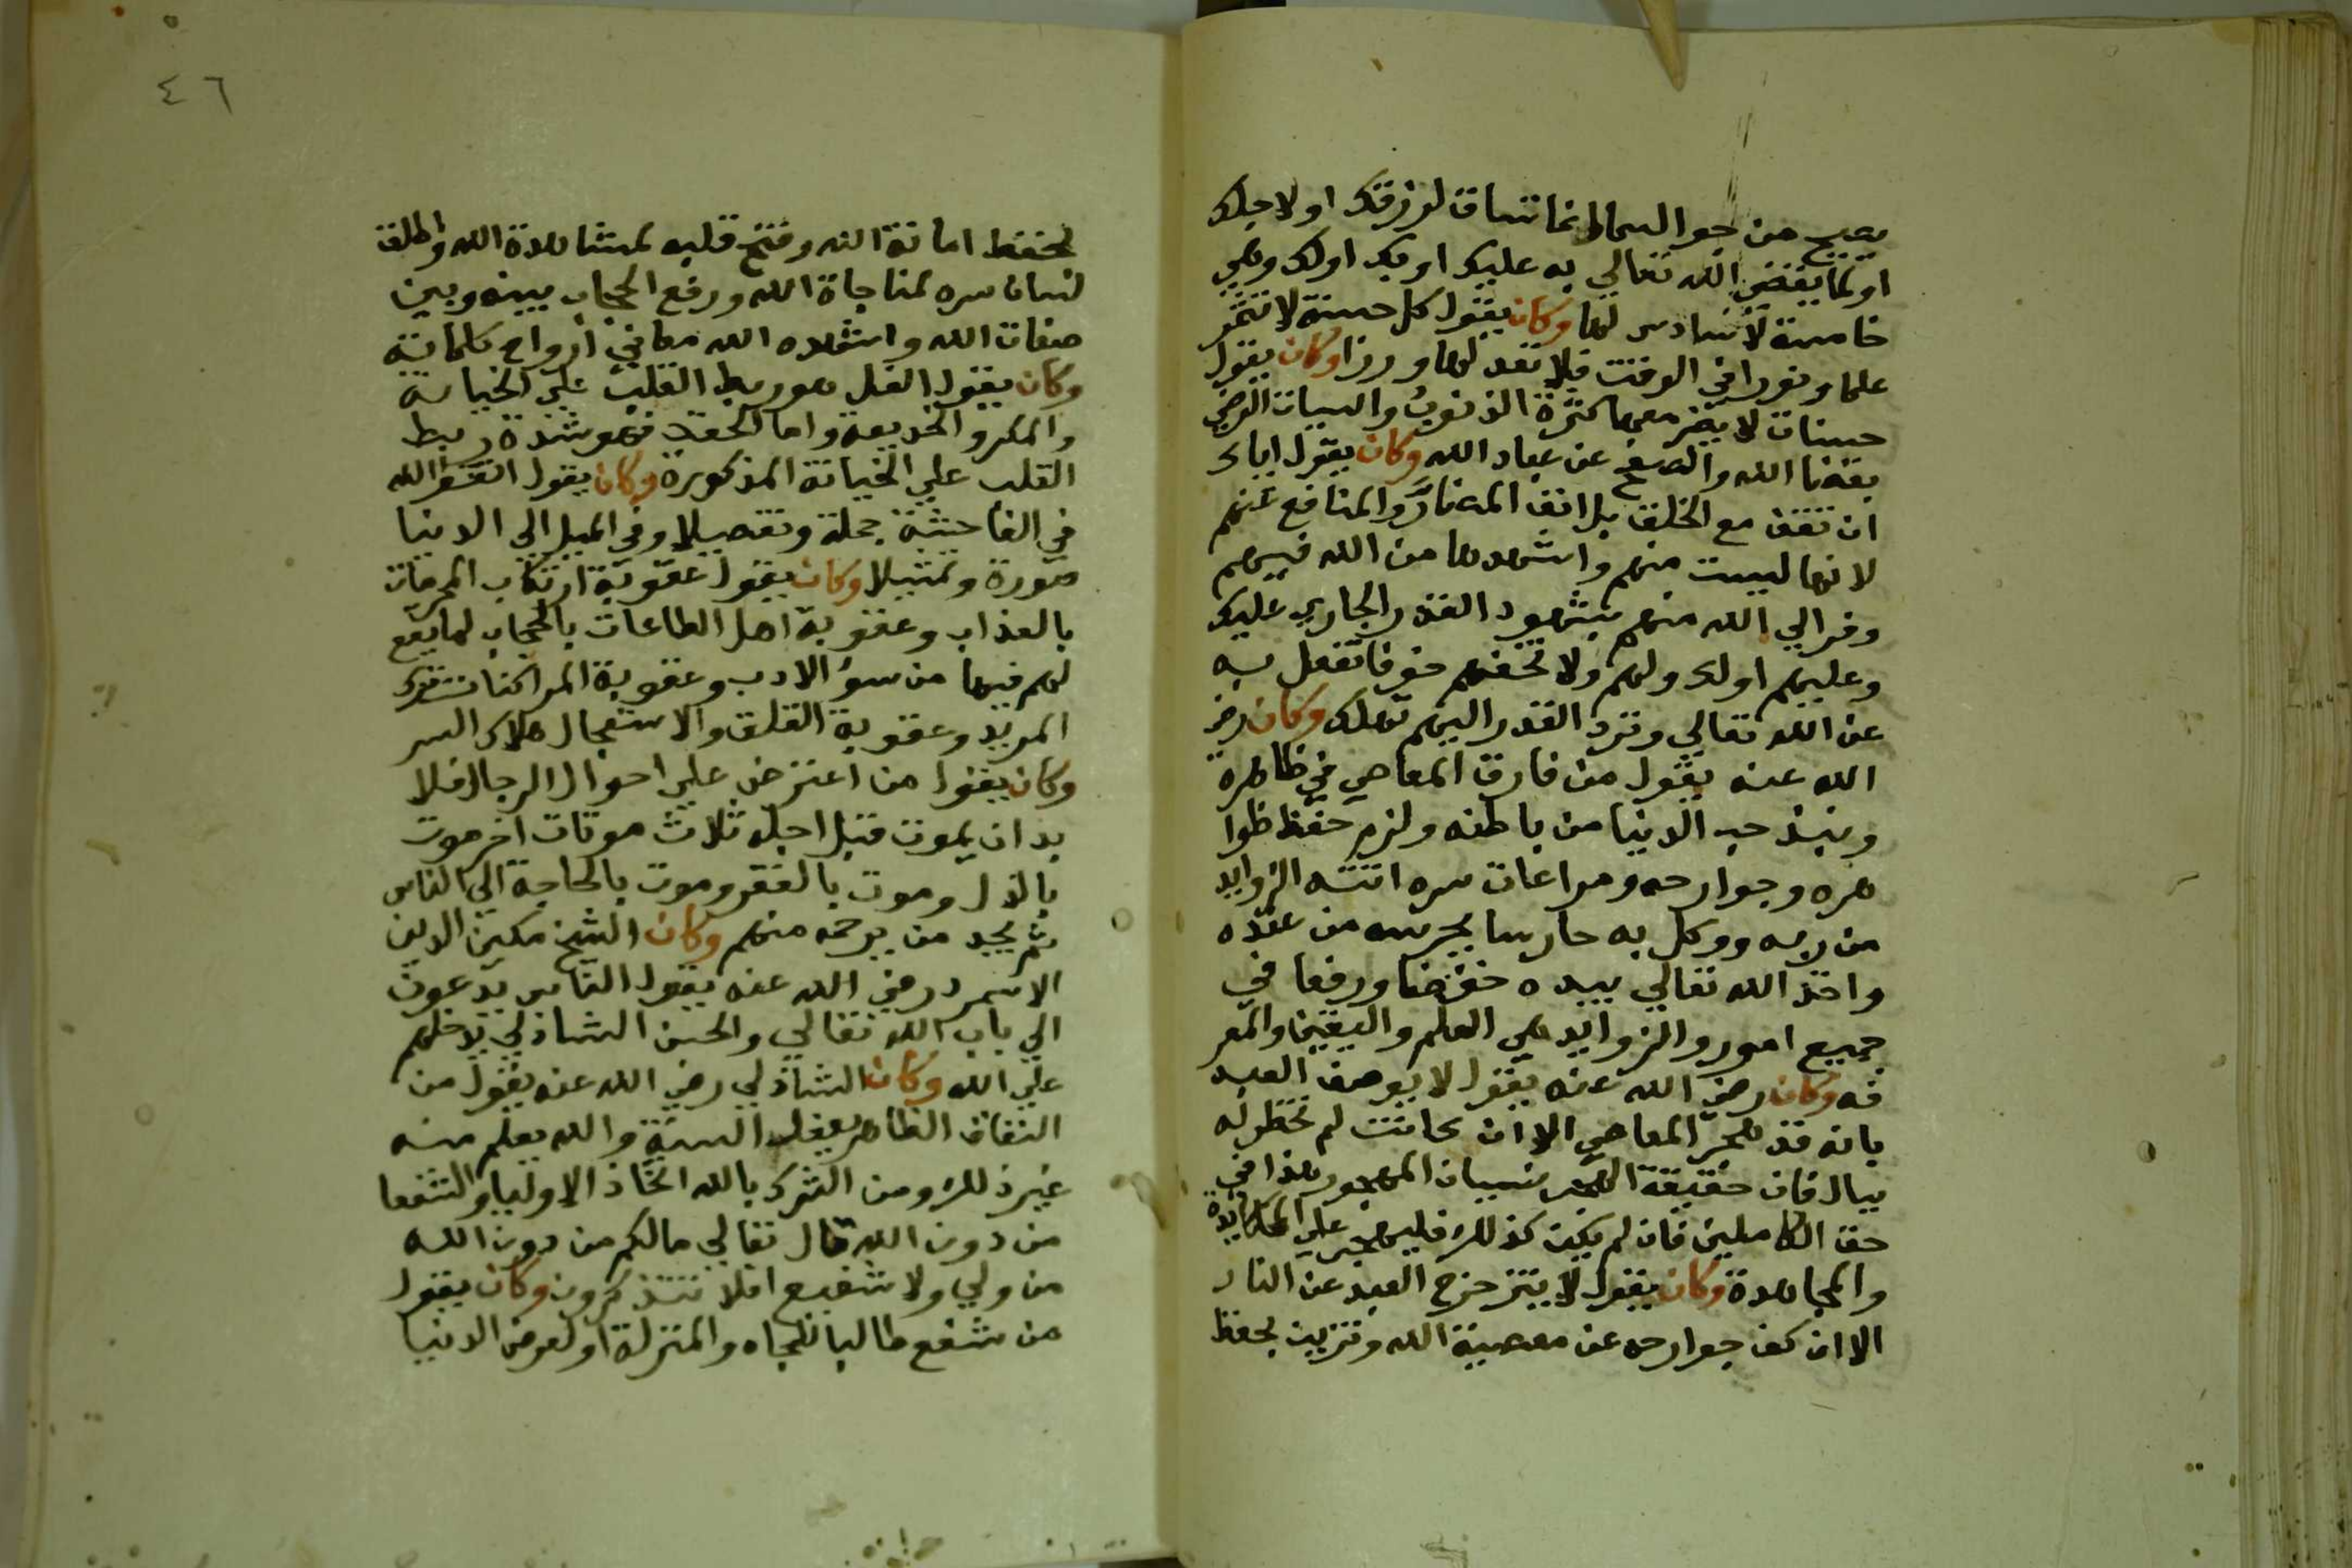 يصيح من جو السما انما تساق لرزقك او لاجلك
او لما يقضي الله تعالي به عليك او بك او لك وهي
خامسة لا سادس لها وكان يقول كل حسنة لا تثمر
علما ونورا في الوقت فلا تعد لها وزرا وكان يقول
حسنات لا يضر معهما كثرة الذنوب والسيات الرضي
بقضا الله والصفح عن عباد الله وكان يقول اياك
ان تقف مع الخلق بل انف المضار والمنافع عنهم
لانها ليست منهم واشهدها من الله فيهم
وفر الي الله منهم بشهود القدر الجاري عليك
وعليهم او لك ولهم ولا تخفهم خوفا تغفل به
عن الله تعالي وترد القدر اليهم تهلك وكان رضي
الله عنه يقول من فارق المعاصي في ظاهره
ونبذ حب الدنيا من باطنه ولزم حفظ ظوا
هره وجوارحه ومراعات سره اتته الزوايد
من ربه ووكل به حارسا يحرسه من عنده
واخذ الله تعالي بيده خفضا ورفعا في
جميع امور والزوايد هي العلم واليقين والمعر
فه وكان رضي الله عنه يقول لا يوصف العبد
بانه قد هجر المعاصي الا ان كانت لم تخطر له
ببال فان حقيقة الهجر نسيان المهجور هذا في
حق الكاملين فان لم يكن كذلك فليهجر علي المكابدة
والمجاهدة وكان يقول لا يتزحزح العبد عن النار
الا ان كف جوارحه عن معصية الله وتزين بحفظ
٤٦
لحفظ امانة الله وفتح قلبه لمشاهدة الله واطلق
لسان سره لمناجاة الله ورفع الحجاب بينه وبين
صفات الله واشهده الله معاني ارواح كلماته
وكان يقول الغل هو ربط القلب علي الخيانة
والمكر والخديعة واما الحقد فهو شدة ربط
القلب علي الخيانة المذكورة وكان يقول اتق الله
في الفاحشة جملة وتفصيلا وفي الميل الي الدنيا
صورة وتمثيلا وكان يقول عقوبة ارتكاب المحرمات
بالعذاب وعقوبة اهل الطاعات بالحجاب لما يقع
لهم فيها من سوء الادب وعقوبة المراكنات
المريد وعقوبة القلق والاستعجال هلاك السر
وكان يقول من اعترض علي احوال الرجال فلا
بد ان يموت قبل اجله ثلاث موتات اخر موت
بالذل وموت بالفقر وموت بالحاجة الي الناس
ثم يجد من يرحمه منهم وكان الشيخ مكين الدين
الاسمر رضي الله عنه يقول الناس يدعون
الي باب الله تعالي والحسن الشاذلي يدخلهم
علي الله وكان الشاذلي رضي الله عنه يقول من
النفاق التظاهر بفعل السنة والله يعلم منه
غير ذلك ومن الشرك بالله اتخاذ الاوليا والشفعا
من دون الله قال تعالي مالكم من دون الله
من ولي ولا شفيع افلا تتذكرون وكان يقول
من شفع طالبا للجاه والمنزلة او لعرض الدنيا